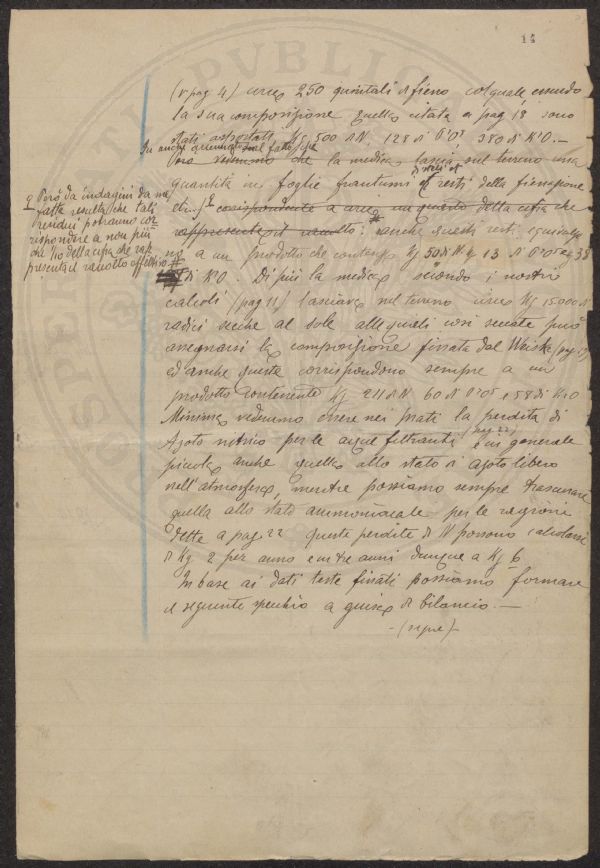 14
(v. pag 4) circa 250 quintali di fieno col quale essendo
la sua composizione quella citata a pag 18 sono
stati asportati Kg 500 di N. 128 di P²O⁵ 380 di K²O. —
In che la medica lascia sul terreno una
quantità in foglie frantumi di steli et resti della fienagione
corrispondente a circa un quarto della cifra che
rappresenta il raccolto: anche questi resti equivalgono
Però da indagini da me
fatte resulta che tali
residui potranno cor
rispondere a non più
che 1/10 della cifra che rap
presenta il raccolto effettivo
a un prodotto che contenga Kg 50 di N. 13 di P²O⁵ e 38
di K²O. Di più la medica secondo i nostri
calcoli (pag 11) lasciava nel terreno circa Kg 15000 di
radici secche al sole alle quali così seccate può
assegnarsi la composizione fissata dal Weiske (pag
ed anche queste corrispondono sempre a un
prodotto contenente Kg 211 di N 60 di P²O⁵ e 58 di K²O
Minima vedemmo essere nei prati la perdita di
Azoto nitrico per le acque filtranti (pag 22) in generale
piccola anche quella allo stato di azoto libero
nell'atmosfera, mentre possiamo sempre trascurare
quella allo stato ammoniacale per le ragioni
dette a pag. 22 queste perdite di N possono calcolarsi
di Kg. 2 per anno e in tre anni dunque a Kg 6.
In base ai dati teste fissati possiamo formare
il seguente specchio a guisa di bilancio. —
-(segue)-